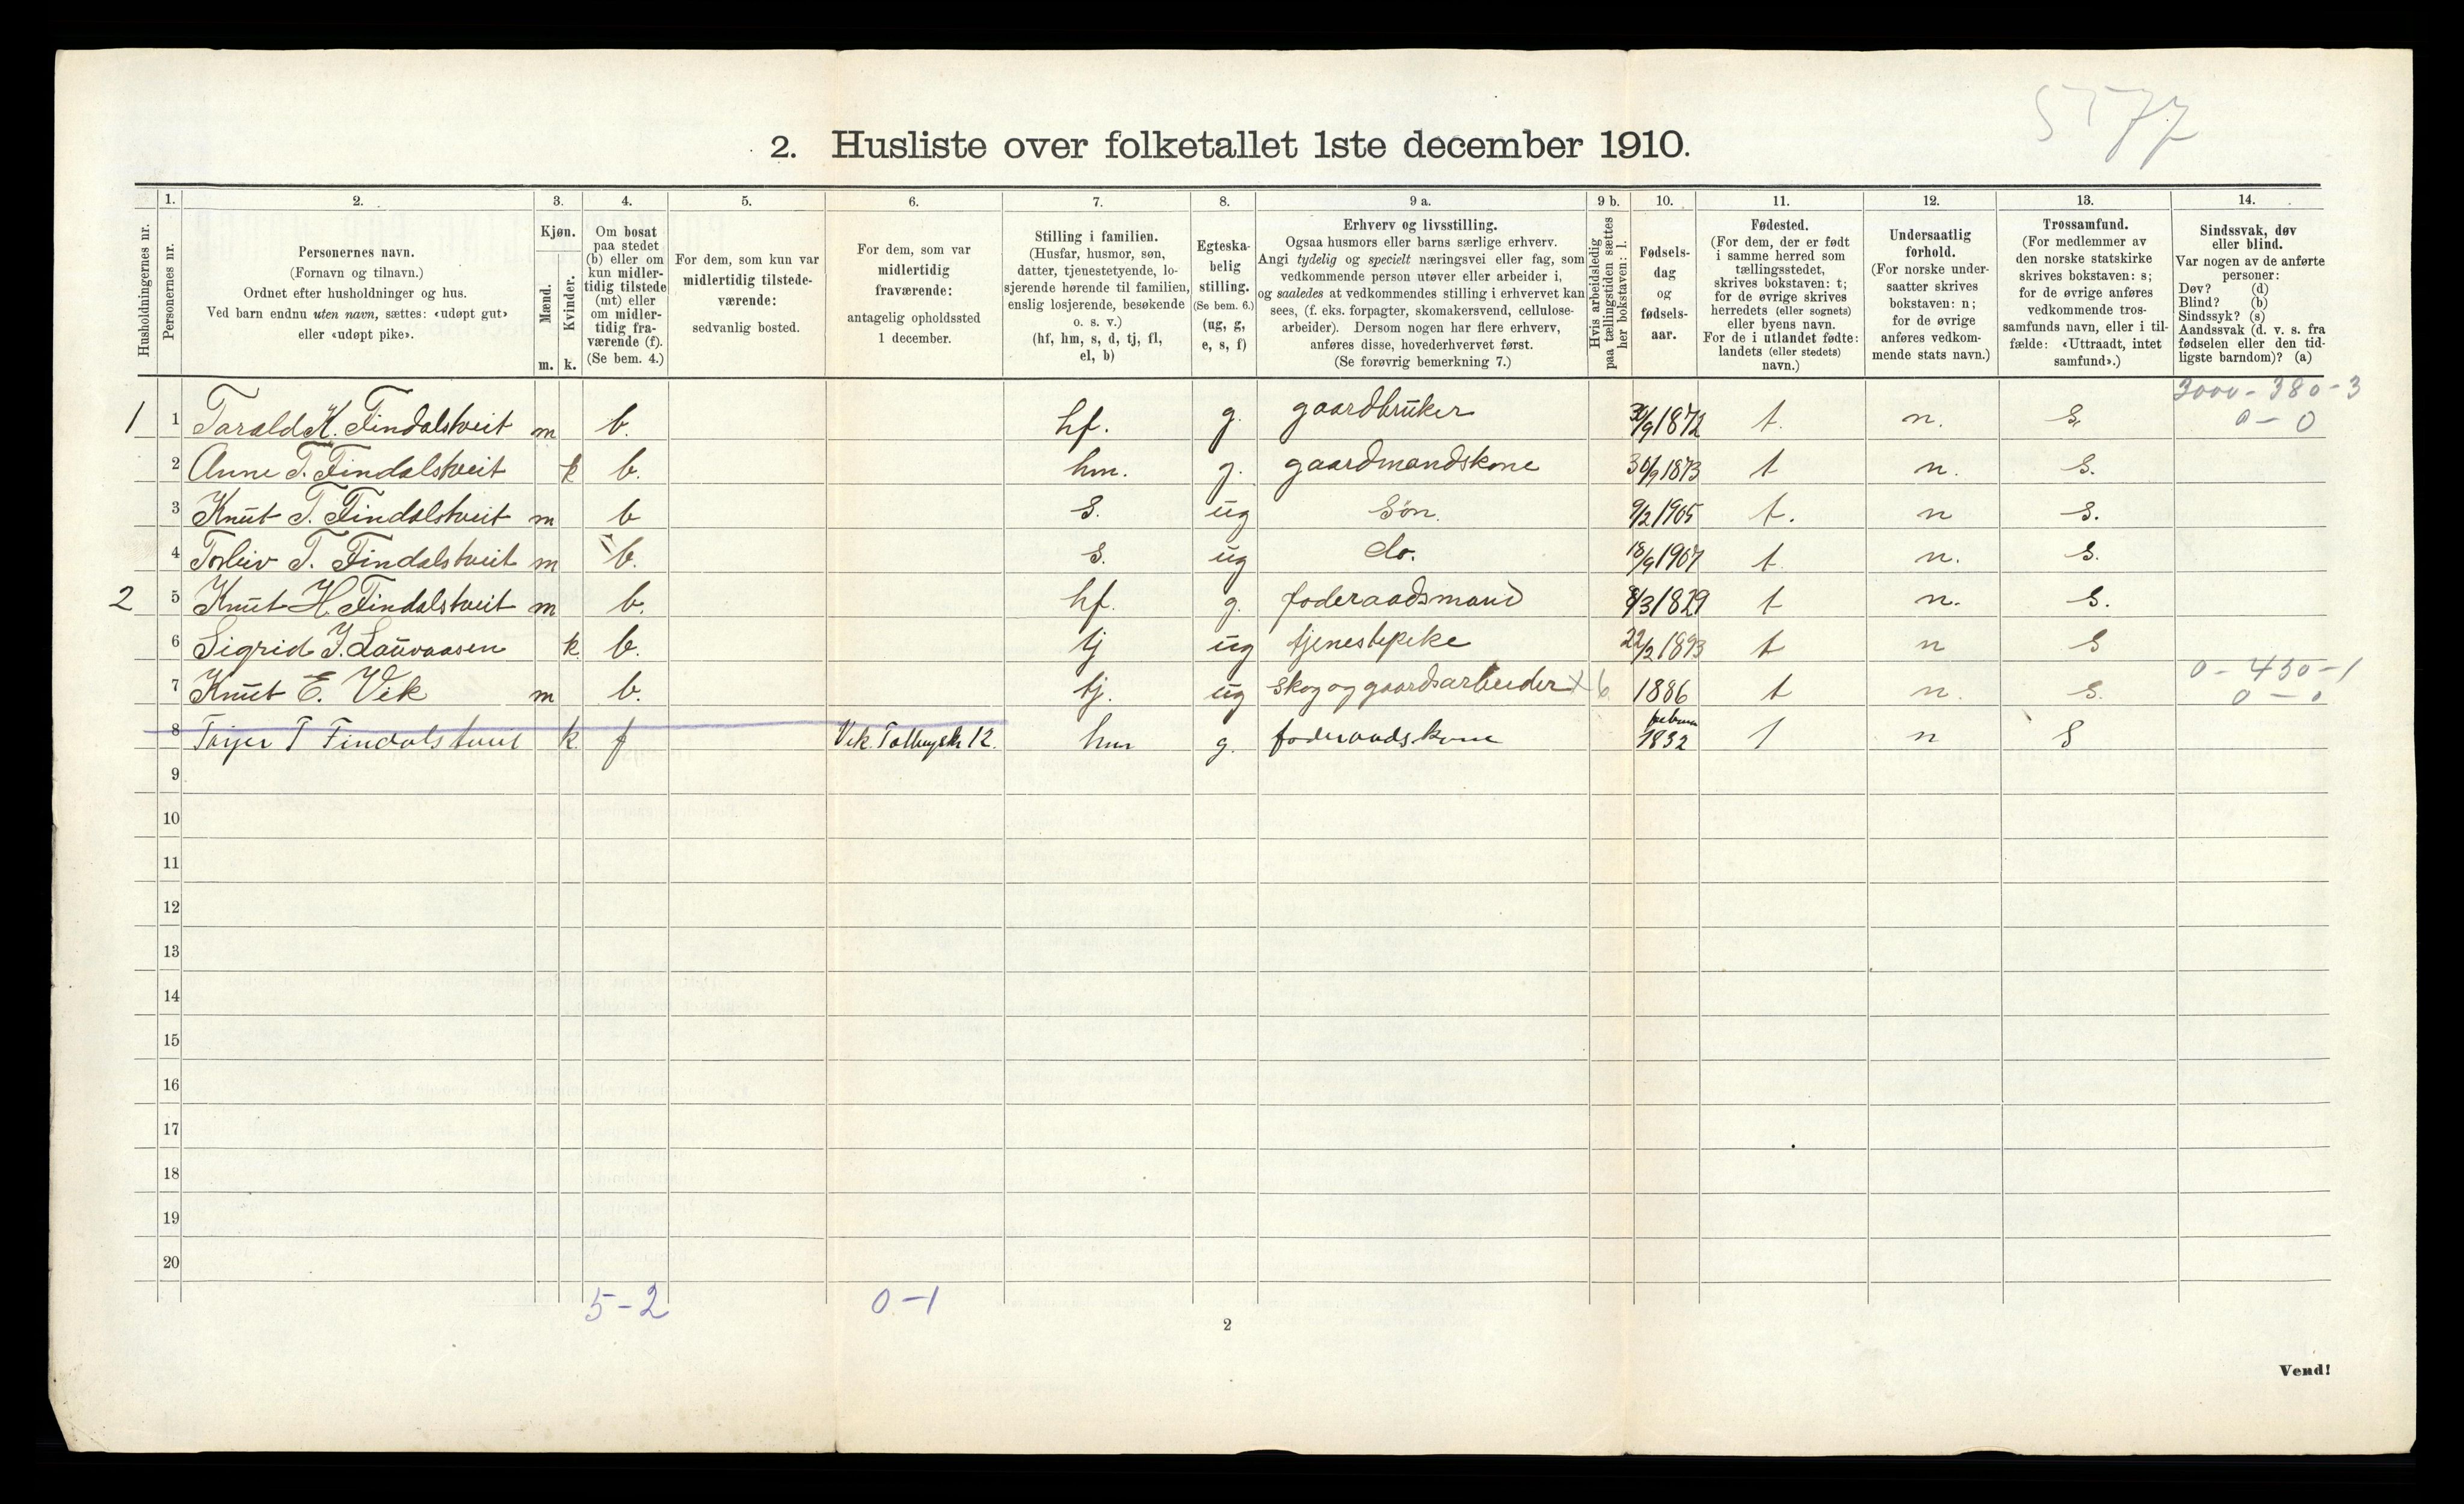 5577
2. Husliste over folketallet 1ste december 1910.
Husholdningernes nr.
1. Personernes nr.
2. Personernes navn. (Fornavn og tilnavn.) Ordnet efter husholdninger og hus. Ved barn endnu uten navn, sættes: «udøpt gut» eller «udøpt pike».
3. Kjøn. Mænd. m. Kvinder. k.
4. Om bosat paa stedet (b) eller om kun midlertidig tilstede (mt) eller om midlertidig fraværende (f). (Se bem. 4.)
5. For dem, som kun var midlertidig tilstedeværende: sedvanlig bosted.
6. For dem, som var midlertidig fraværende: antagelig opholdssted 1 december.
7. Stilling i familien. (Husfar, husmor, søn, datter, tjenestetyende, losjerende hørende til familien, enslig losjerende, besøkende o. s. v.) (hf, hm, s, d, tj, fl, el, b)
8. Egteskabelig stilling. (Se bem. 6.) (ug, g, e, s, f)
9 a. Erhverv og livsstilling. Ogsaa husmors eller barns særlige erhverv. Angi tydelig og specielt næringsvei eller fag, som vedkommende person utøver eller arbeider i, og saaledes at vedkommendes stilling i erhvervet kan sees, (f. eks. forpagter, skomakersvend, cellulosearbeider). Dersom nogen har flere erhverv, anføres disse, hovederhvervet først. (Se forøvrig bemerkning 7.)
9 b. Hvis arbeidsledig paa tællingstiden sættes her bokstaven: l.
10. Fødselsdag og fødselsaar.
11. Fødested. (For dem, der er født i samme herred som tællingsstedet, skrives bokstaven: t; for de øvrige skrives herredets (eller sognets) eller byens navn. For de i utlandet fødte: landets (eller stedets) navn.)
12. Undersaatlig forhold. (For norske undersaatter skrives bokstaven: n; for de øvrige anføres vedkommende stats navn.)
13. Trossamfund. (For medlemmer av den norske statskirke skrives bokstaven: s; for de øvrige anføres vedkommende trossamfunds navn, eller i tilfælde: «Uttraadt, intet samfund».)
14. Sindssvak, døv eller blind. Var nogen av de anførte personer: Døv? (d) Blind? (b) Sindssyk? (s) Aandssvak (d. v. s. fra fødselen eller den tidligste barndom)? (a)
1 1 Tarald K. Findalstveit m b. hf. g. gaardbruker 30/9 1872 t. n. s. 3000-380-3 0-0
2 Anne T. Findalstveit k b. hm. g. gaardmandskone 1873 t n. s.
3 Knut T. Findalstveit m b s. ug Søn. 9/2 1905 t. n s.
4 Torleiv T. Findalstveit m b. s. ug do. 18/9 1907 t n. s.
2 5 Knut H. Findalstveit m b. hf. g. foderaadsmand 8/3 1829 t n. s.
6 Sigrid J. Lauvaasen k. b. tj ug tjenestepike 22/2 1893 t n s
7 Knut E. Vik m b. tj. ug skog og gaardsarbeider x 6 1886 t n. s. 0-450-1 0-0
8 T Findalstveit k f Vik. 12. hm g. foderaadskone 1832 t n s
9
10
11
12
13
14
15
16
17
18
19
20
5-2 0-1
2
Vend!